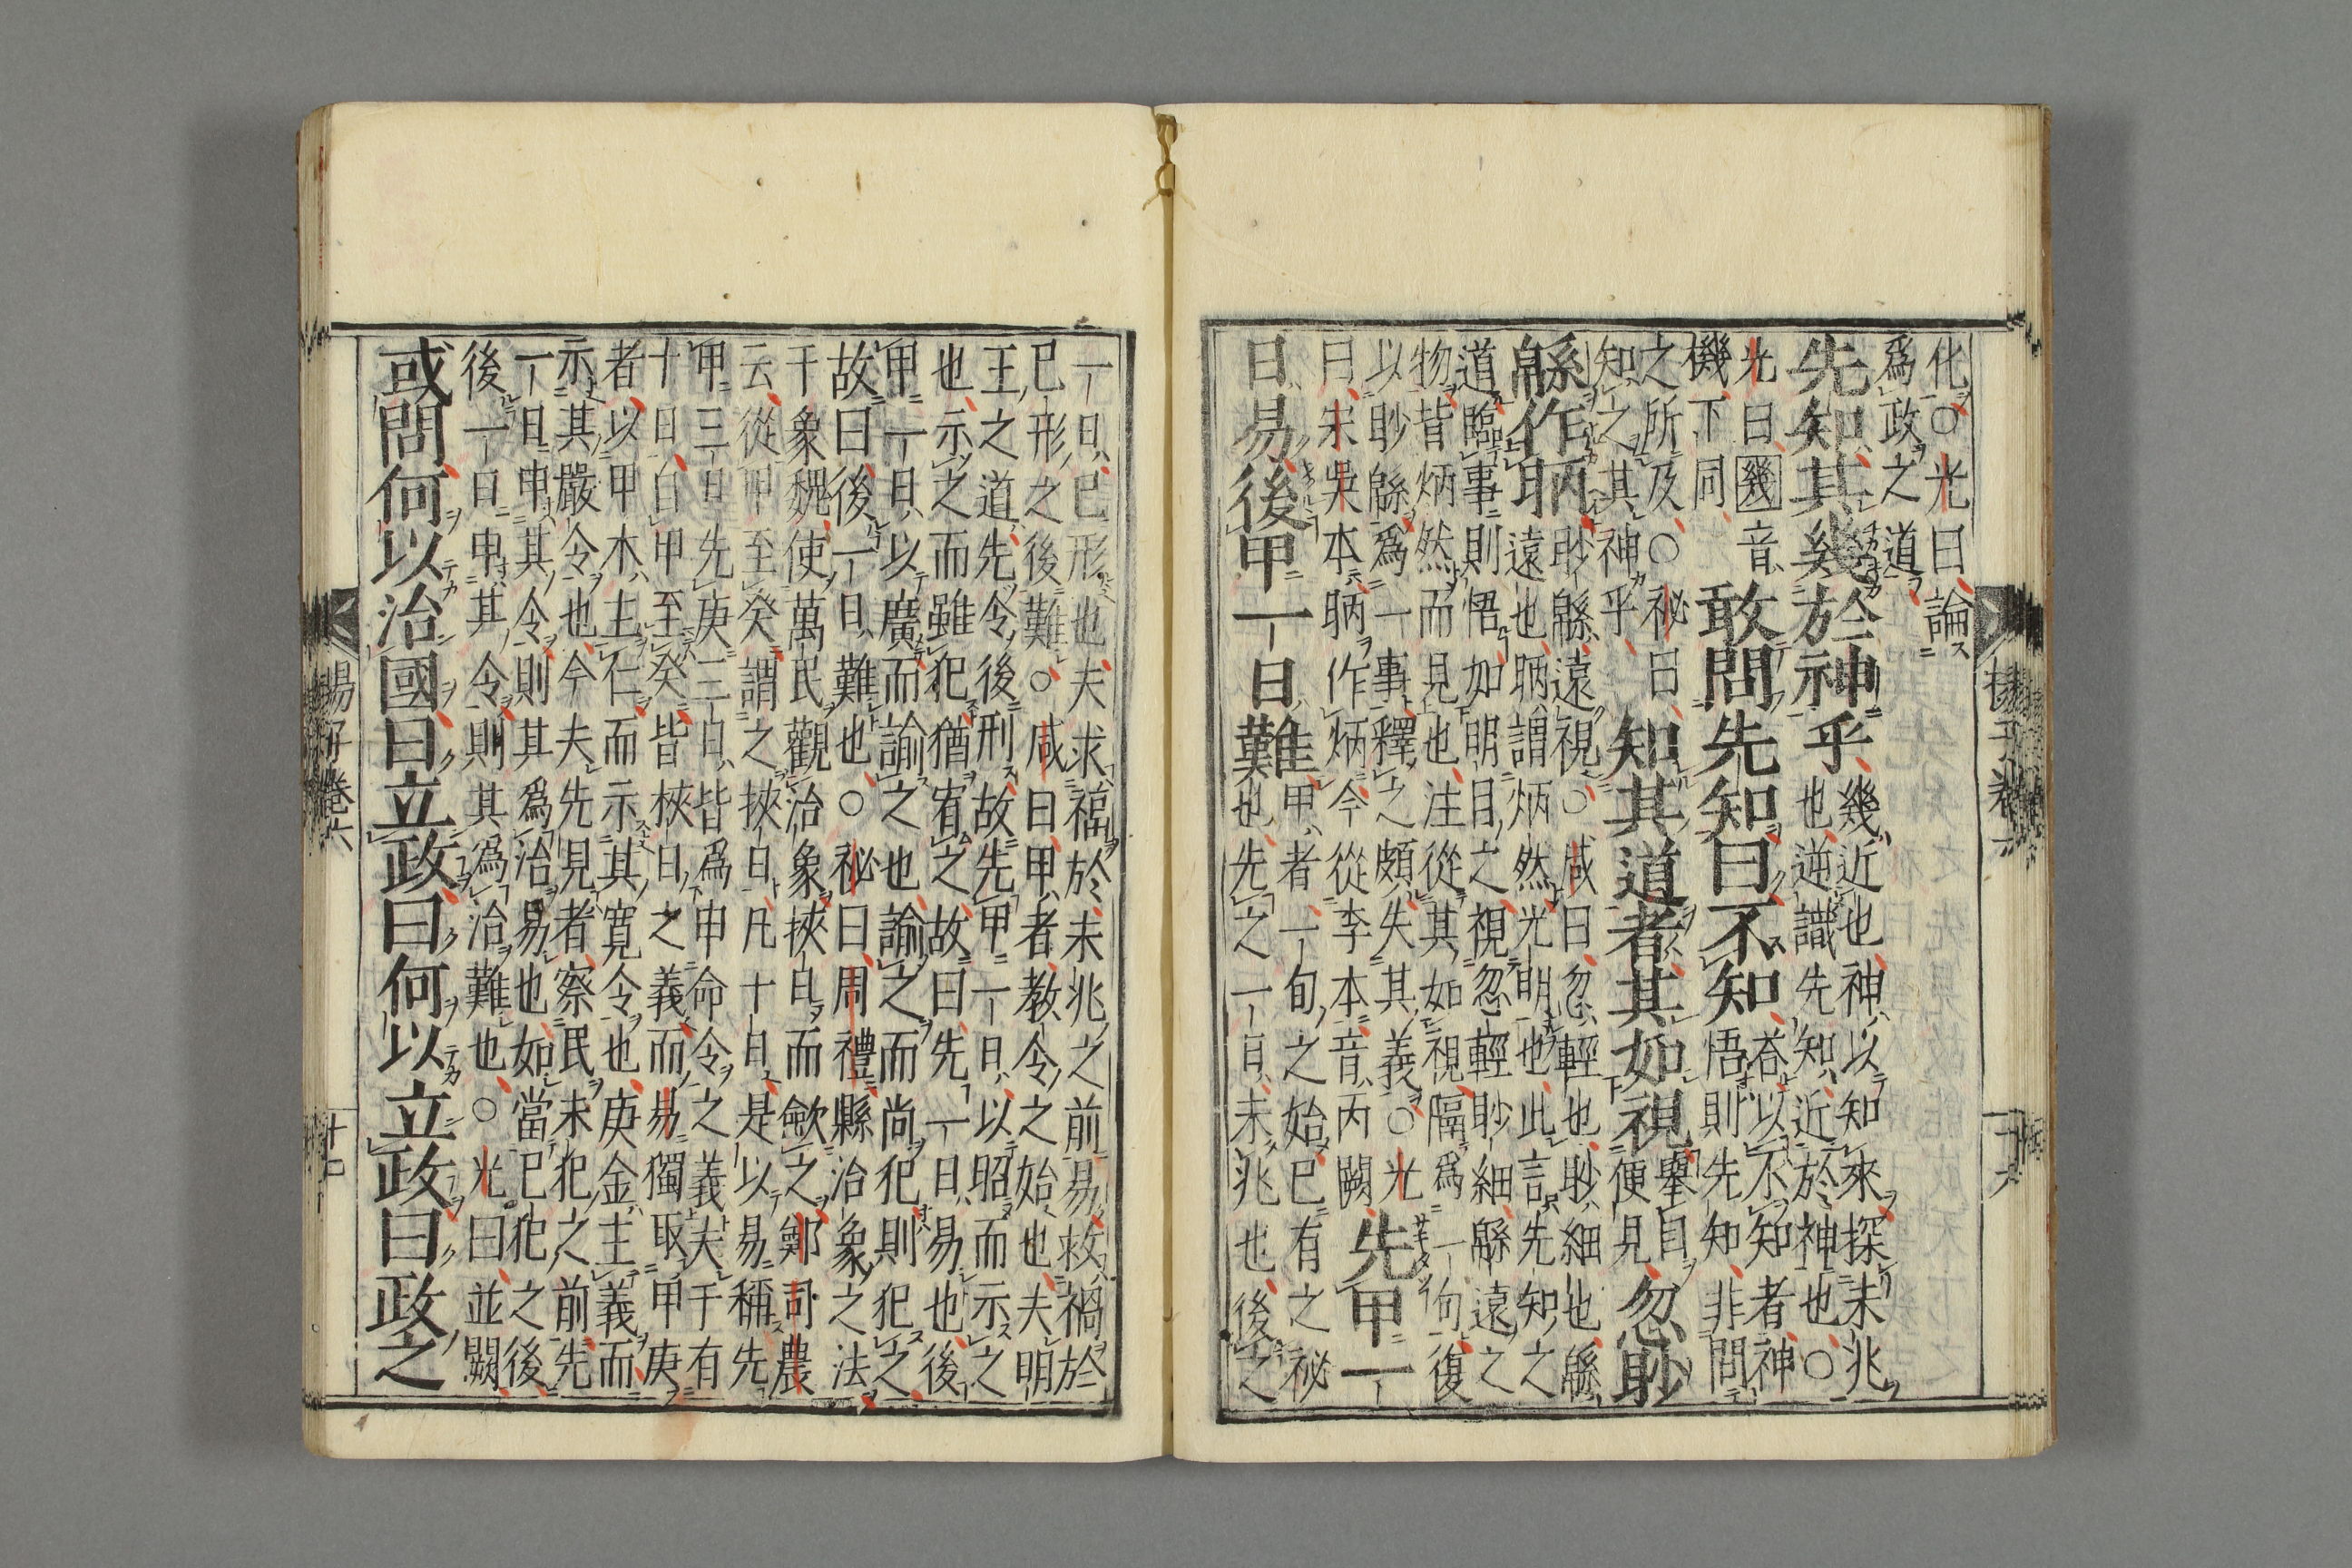 化○光曰論
爲政之道
先知其幾於神乎
幾近也神以知來探未兆
也逆識先知近於神也○
光曰幾音
機下同
敢問先知曰不知
荅以不知者神
悟則先知非問
之所及○祕曰
知之其神乎
知其道者其如視
舉目
便見
忽眇
緜作昞
眇緜遠視○咸曰忽輕也眇細也緜
遠也昞謂炳然光明也此言先知之
道臨事則悟如明目之視忽輕眇細緜遠之
物皆炳然而見也注從其如視隔爲一句復
以眇緜爲一事釋之頗失其義○光
曰宋吳本昞作炳今從李本音丙闕
先甲一
日易後甲一日難
甲者一旬之始已有之祕
也先之一日未兆也後之
一日已形也夫求福於未兆之前易救禍於
已形之後難○咸曰甲者教令之始也夫明
王之道先令後刑故先甲一日以昭而示之
也示之而雖犯猶宥之故曰先一日易也後
甲一日以廣而諭之也諭之而尚犯則犯之
故曰後一日難也○祕曰周禮縣治象之法
于象魏使萬民觀治象挾日而歛之鄭司農
云從甲至癸謂之挾日凡十日是以易稱先
甲三日先庚三日皆爲申命令之義夫于有
十日自甲至癸皆挾日之義而易獨取甲庚
者以甲木主仁而示其寛令也庚金主義而
示其嚴令也今夫先見者察民未犯之前先
一日申其令則其爲治易也如當已犯之後
後一日申其令則其爲治難也○光曰並闕
或問何以治國曰立政曰何以立政曰政之
揚子卷六